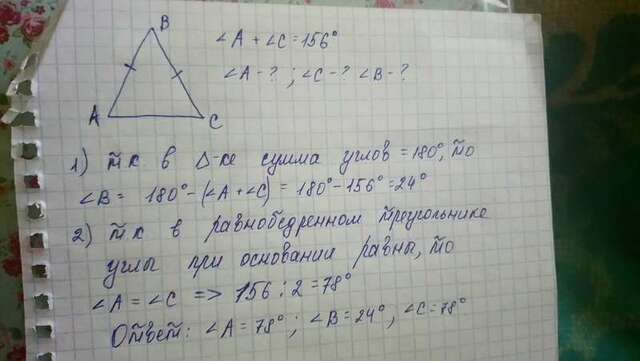 B
A
C
∠A + ∠C = 156°
∠A - ? ; ∠C - ? ∠B - ?
1) т.к в Δ-ке сумма углов = 180°, то
∠B = 180° - (∠A + ∠C) = 180° - 156° = 24°
2) т.к в равнобедренном треугольнике
углы при основании равны, то
∠A = ∠C => 156 : 2 = 78°
Ответ: ∠A = 78° ; ∠B = 24° , ∠C = 78°